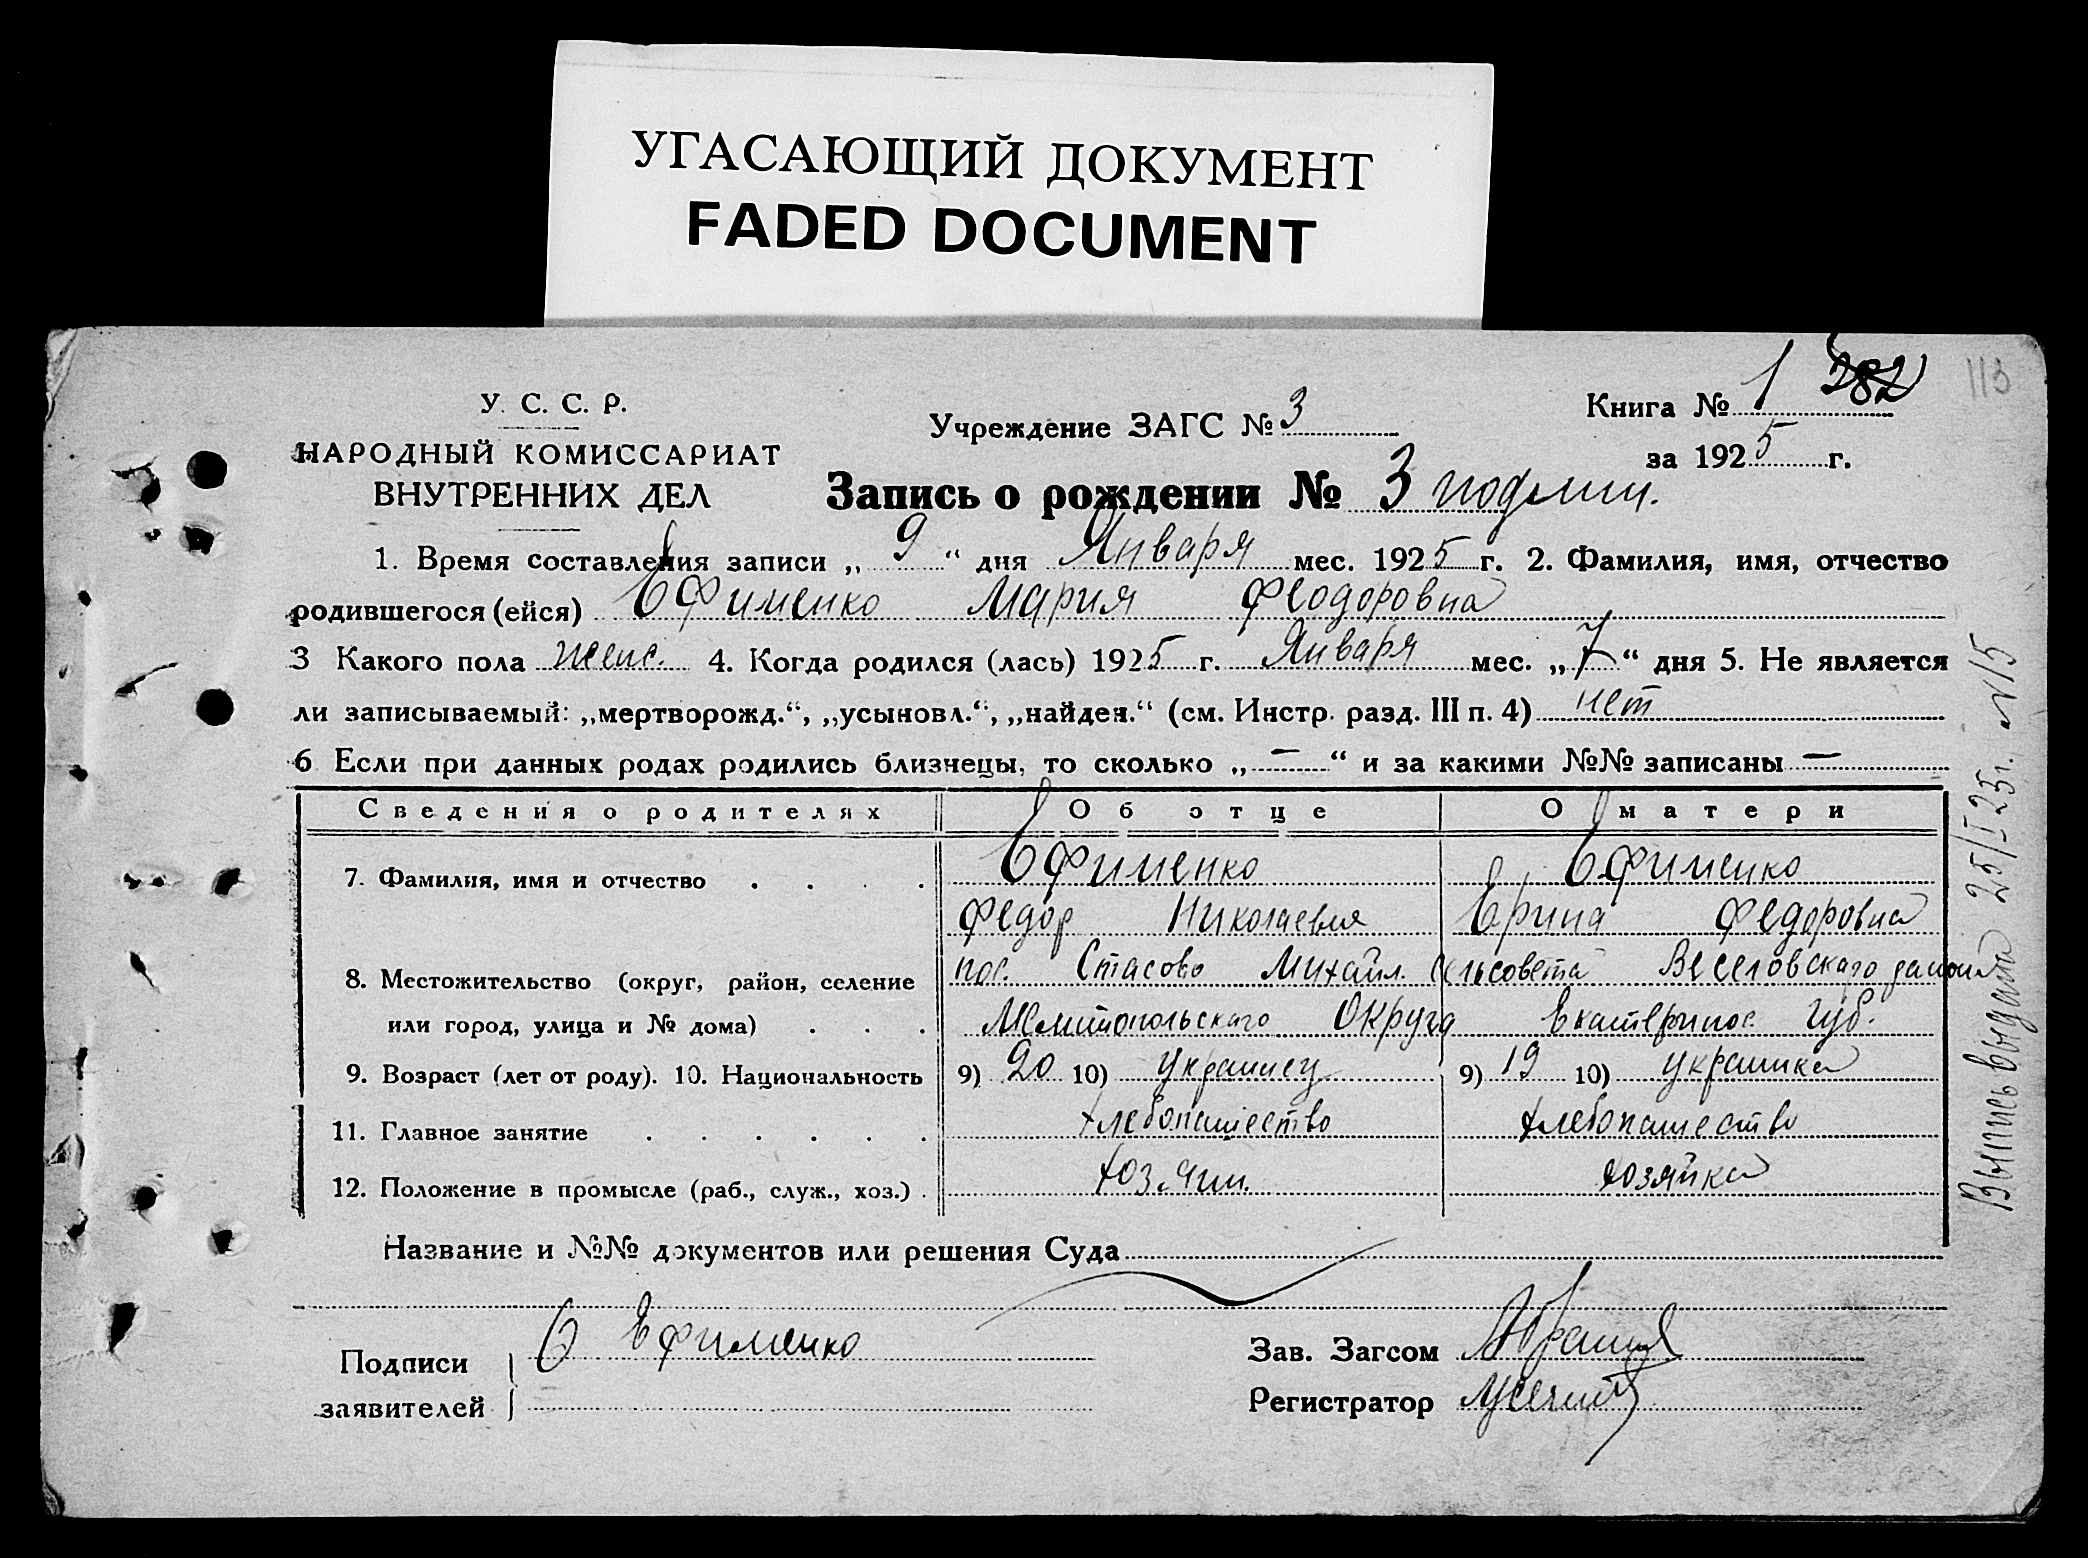 УГАСАЮЩИЙ ДОКУМЕНТ
FADED DOCUMENT
113
У. С. С. Р.
НАРОДНЫЙ КОМИССАРИАТ
ВНУТРЕННИХ ДЕЛ
Учреждение ЗАГС № 3
Книга № 1 282
за 1925 г.
Запись о рождении № 3 подлин.
1. Время составления записи „ 9 “ дня Января мес. 1925 г. 2. Фамилия, имя, отчество
родившегося (ейся) Ефименко Мария Феодоровна
3 Какого пола женс. 4. Когда родился (лась) 1925 г. Января мес. „ 7 “ дня 5. Не является
ли записываемый: „мертворожд.“, „усыновл.“, „найден.“ (см. Инстр. разд. III п. 4) нет
6 Если при данных родах родились близнецы, то сколько „ — “ и за какими №№ записаны —
Сведения о родителях Об отце О матери
7. Фамилия, имя и отчество Ефименко Ефименко
Федор Николаевич Ерина Федоровна
8. Местожительство (округ, район, селение пос. Стасово Михайл. Сельсовета Веселовскаго района
или город, улица и № дома) Мелитопольскаго Округа Екатеринос. Губ.
9. Возраст (лет от роду). 10. Национальность 9) 20 10) Украинец 9) 19 10) Украинка
11. Главное занятие хлебопашество хлебопашество
12. Положение в промысле (раб., служ., хоз.) хозяин. хозяйка
Название и №№ документов или решения Суда
Подписи заявителей Ефименко
Зав. Загсом
Регистратор
Выпись выдана 25/I 25 г. №15